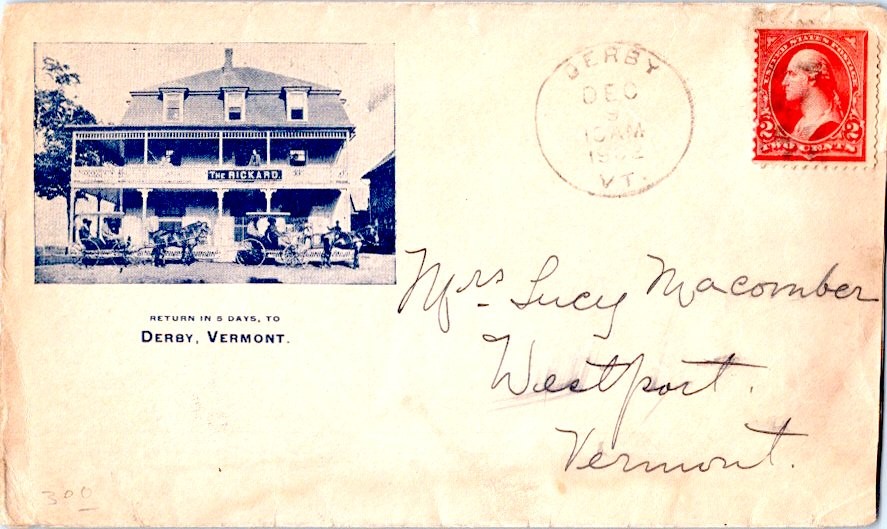 THE RICKARD.
RETURN IN 5 DAYS, TO
DERBY, VERMONT.
DERBY
DEC
10AM
1902
VT.
UNITED STATES POSTAGE
2 2
TWO CENTS
Mrs Lucy Macomber
Westport.
Vermont.
300